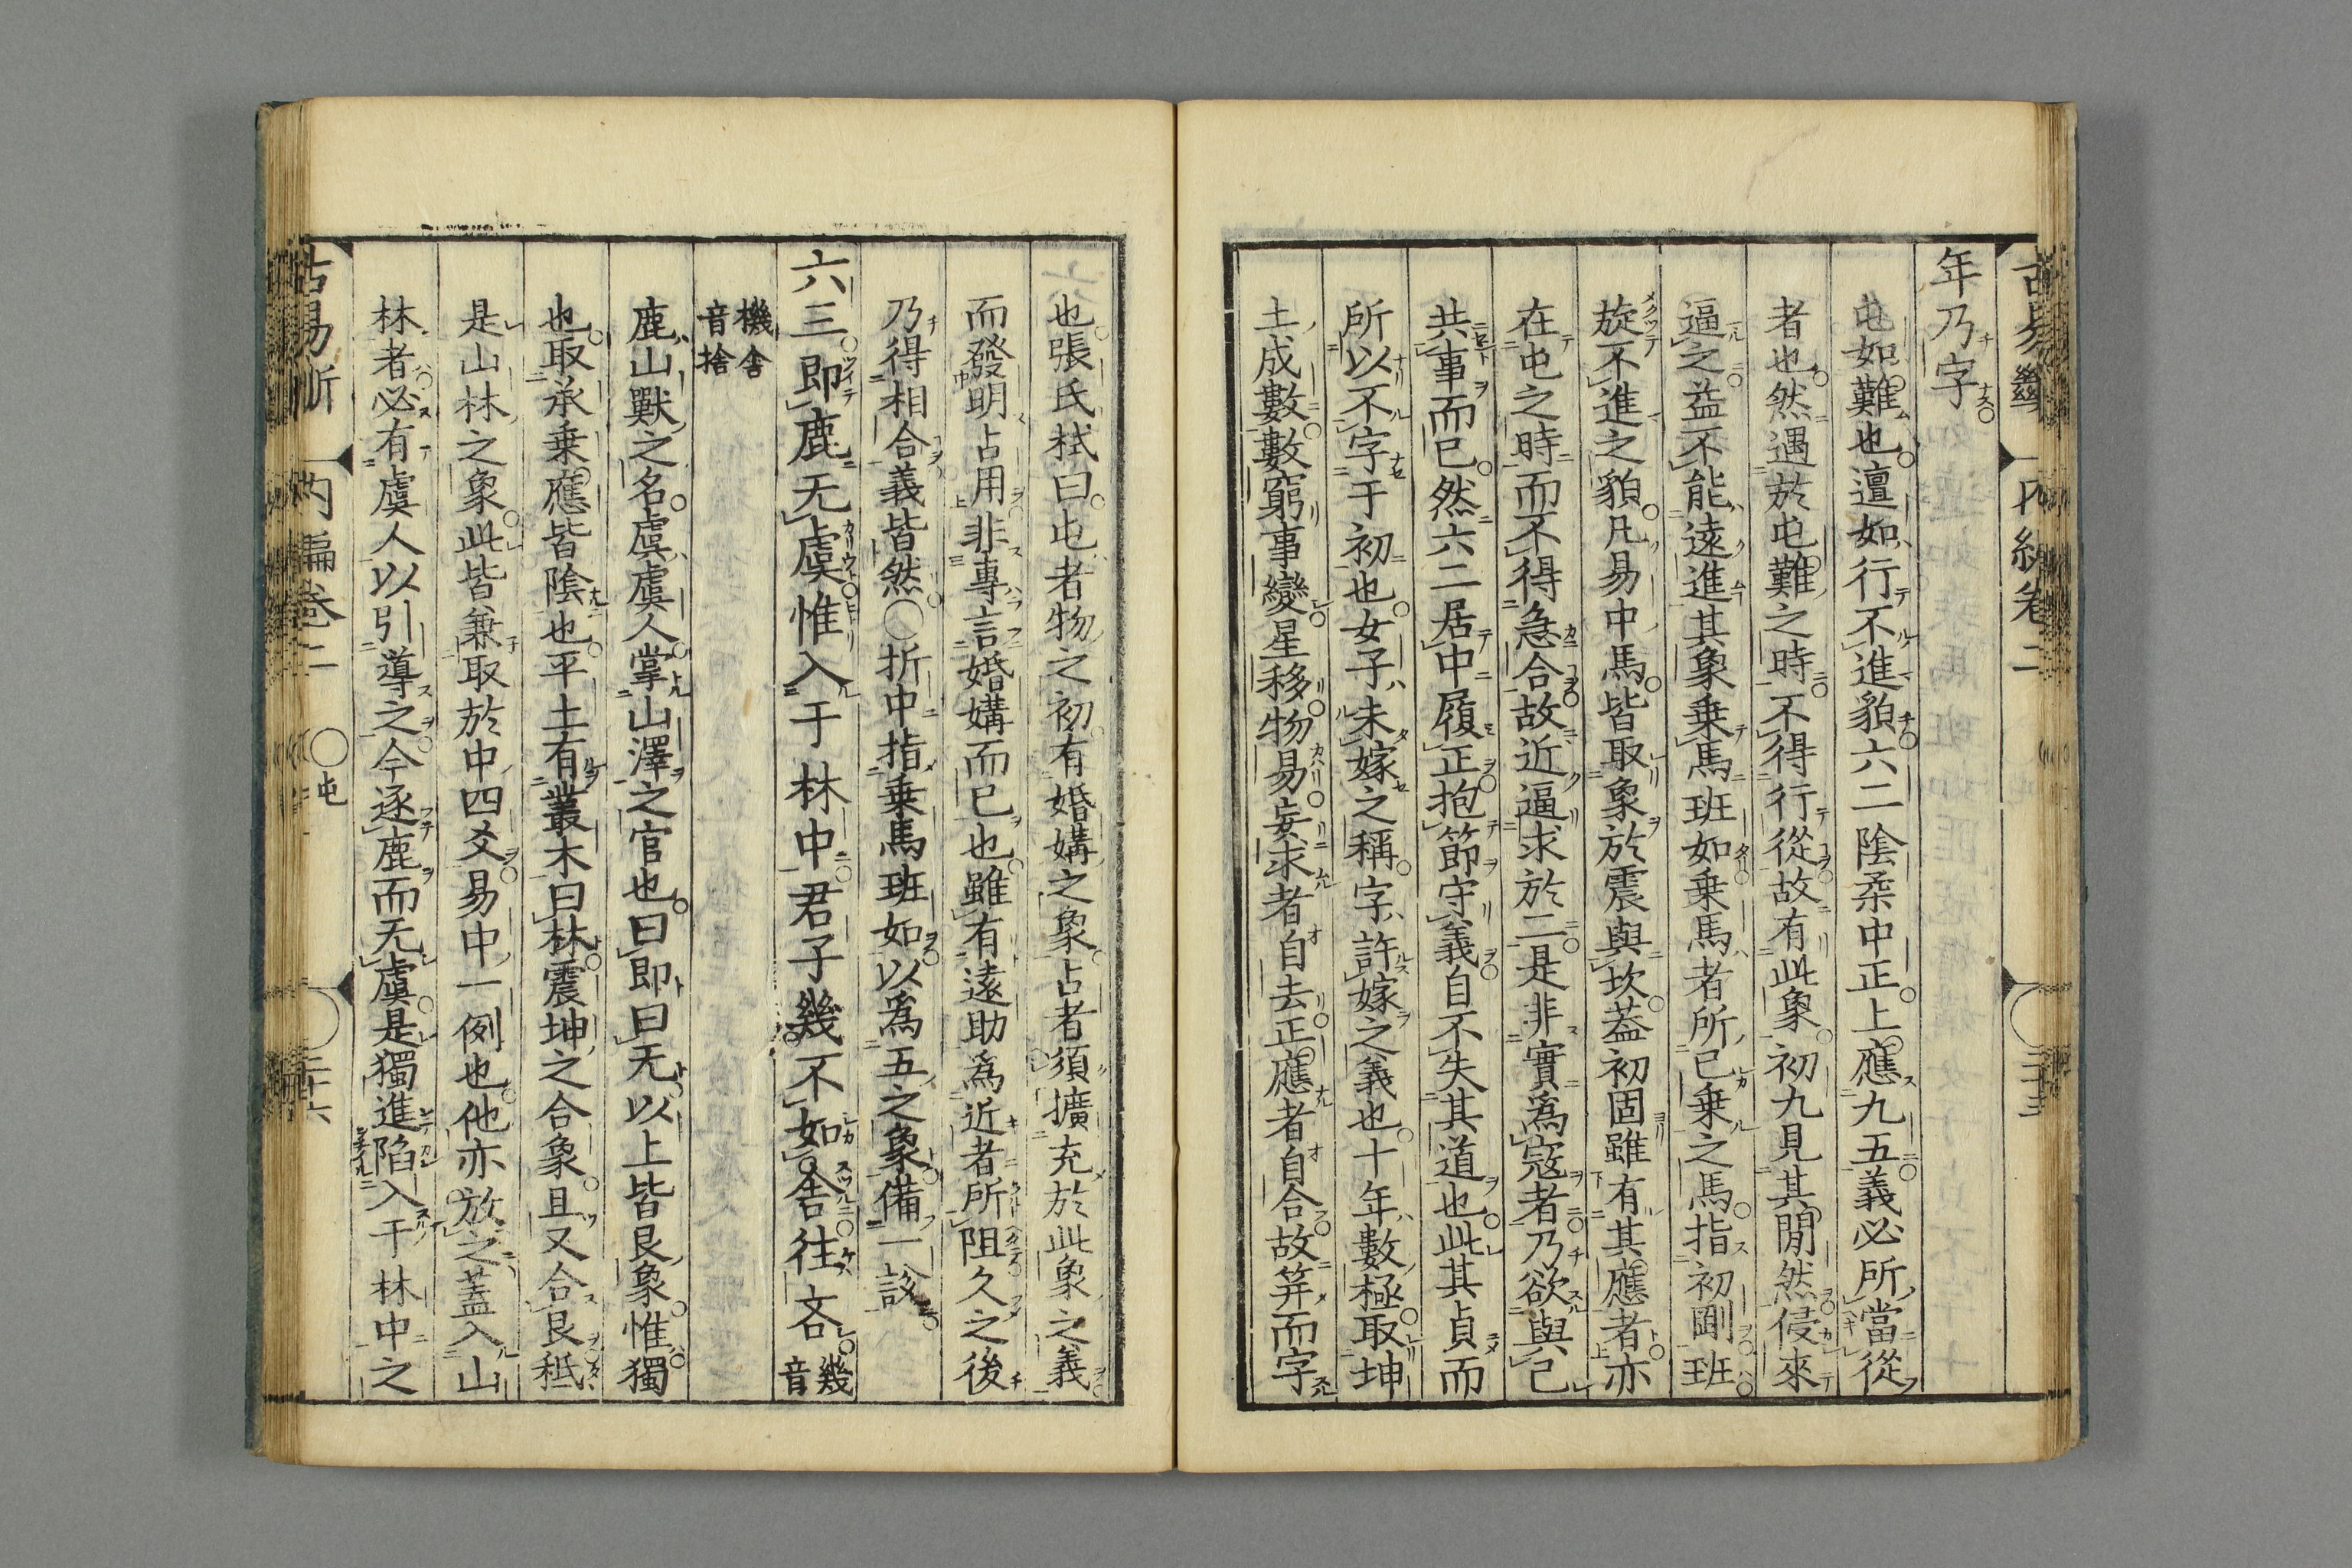 年乃字
屯如難也邅如行不進貌六二陰柔中正上應九五義必所當從
者也然遇於屯難之時不得行從故有此象初九見其間然侵來
逼之益不能遠進其象乗馬班如乗馬者所已乗之馬指初剛班
旋不進之貌凡易中馬皆取象於震與坎葢初固雖有其應者亦
在屯之時而不得急合故近逼求於二是非實爲寇者乃欲與己
共事而已然六二居中履正抱節守義自不失其道也此其貞而
所以不字于初也女子未嫁之稱字許嫁之義也十年數極取坤
土成數數窮事變星移物易妄求者自去正應者自合故筓而字
也張氏栻曰屯者物之初有婚媾之象占者須擴充於此象之義
而發明占用非專言婚媾而已也雖有遠助爲近者所阻久之後
乃得相合義皆然〇折中指乗馬班如以爲五之象備一說
六三即鹿无虞惟入于林中君子幾不如舎往吝 幾音
機舎音捨
鹿山獸之名虞虞人掌山澤之官也曰即曰无以上皆艮象惟獨
也取承乗應皆陰也平土有叢木曰林震坤之合象且又合艮秪
是山林之象此皆兼取於中四爻易中一例也他亦放之蓋入山
林者必有虞人以引導之今逐鹿而无虞是獨進陷入于林中之
内編卷二 〇屯 二十六